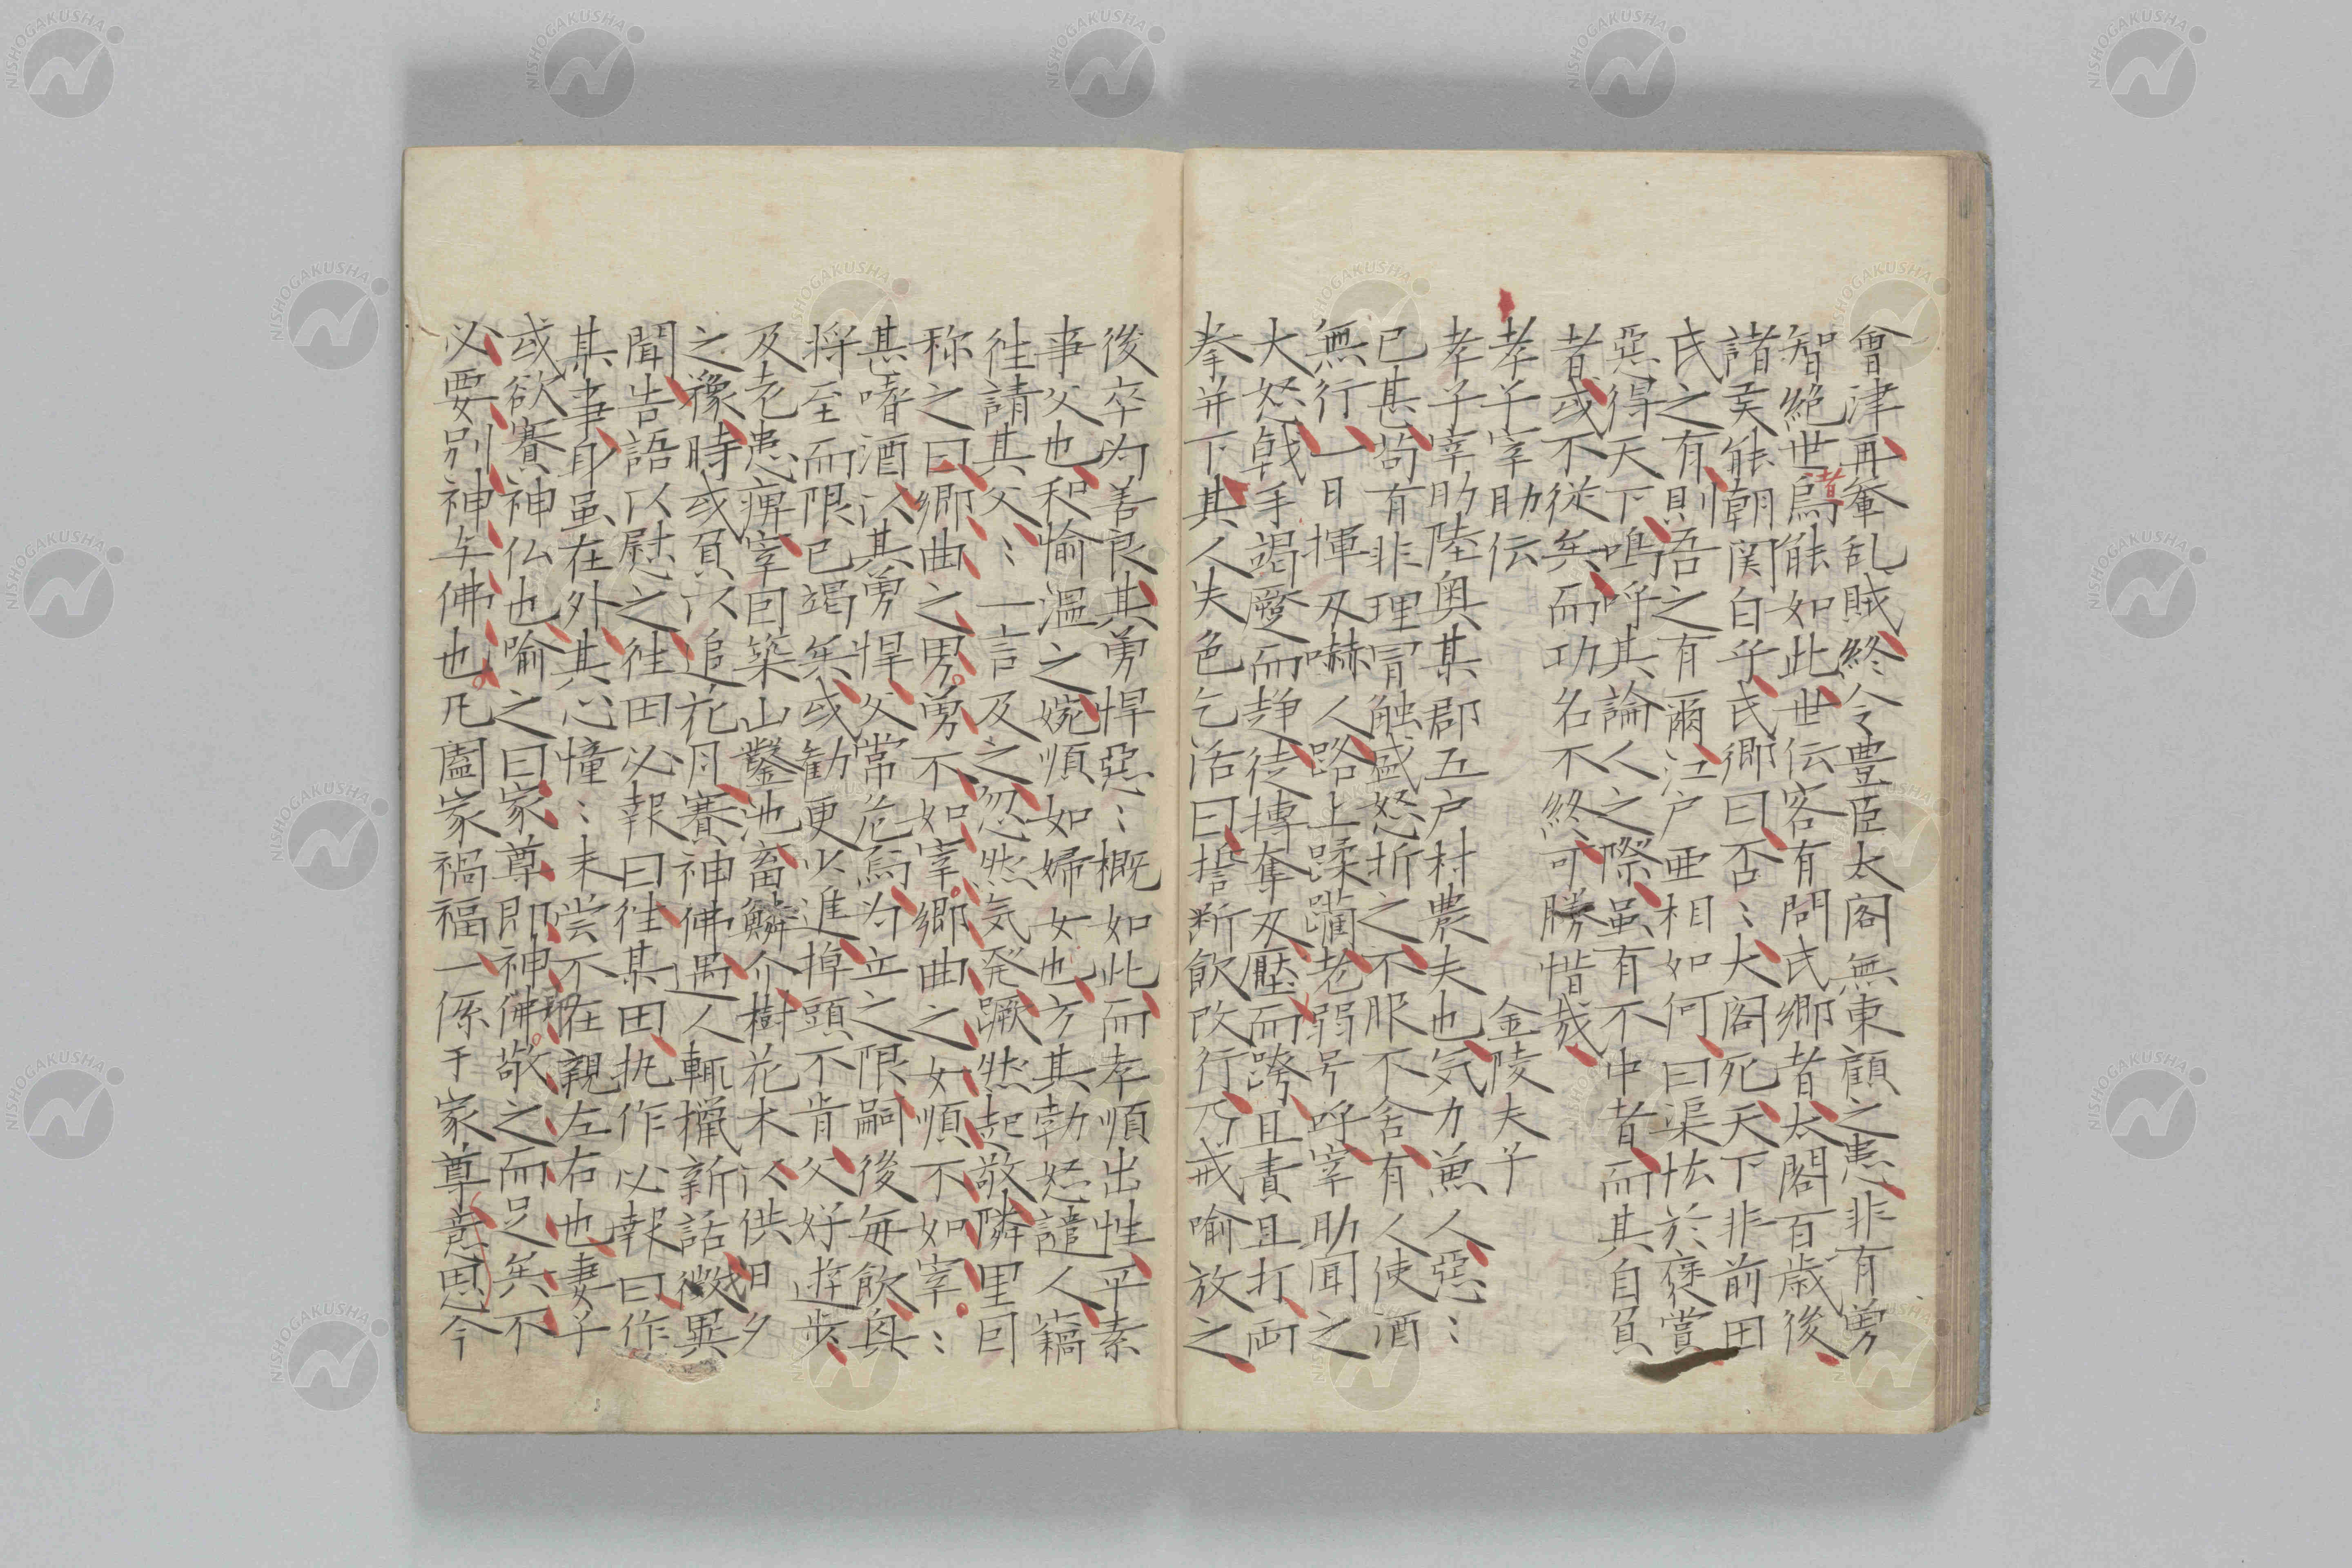 會津再奄乱賊終令豊臣太閤無東顧之患非有勇
智絶世者焉能如此世伝客有問氏郷者太閤百歳後
諸侯能朝関白乎氏郷曰否〻大閤死天下非前田
氏之有則吾之有爾江戸亜相如何曰渠怯於褒賞
惡得天下嗚呼其論人之際虽有不中者而其自負
者或不従矣而功名不終可勝惜哉
孝子宰助伝　金陵夫子
孝子宰助陸奥某郡五戸村農夫也気力兼人惡〻
已甚苟有非理冒触盛怒折之不服不舎有人使酒
無行一日揮刃嚇人路上蹂躙老弱号呼宰助聞之
大怒戟手謁蹙而趍徒摶奪刃壓而跨且責且打両
拳并下其人失色乞活曰誓断飲改行乃戒喻放之
後卒为善良其勇悍惡〻概如此而孝順出性平素
事父也和愉温之婉順如婦女也方其勃怒譴人竊
往請其父〻一言及之忽然気発蹶然起敬隣里囙
称之曰郷曲之男勇不如宰郷曲之女順不如宰〻
甚嗜酒以其勇悍父常危焉为立之限嗣後毎飲與
将至而限已竭矣或勧更少進掉頭不肯父好遊歩
及老患痺宰囙築山鑿池畜鱗介樹花木以供日夕
之豫時或負以追花月賽神佛遇人輒獵新話微異
聞告語以慰之往田必報曰往某田执作必報曰作
其事身虽在外其心憧〻未尝不在親左右也妻子
或欲賽神仏也喻之曰家尊即神佛耶敬之而足矣不
必要別神与佛也凡闔家禍福一係于家尊意思今